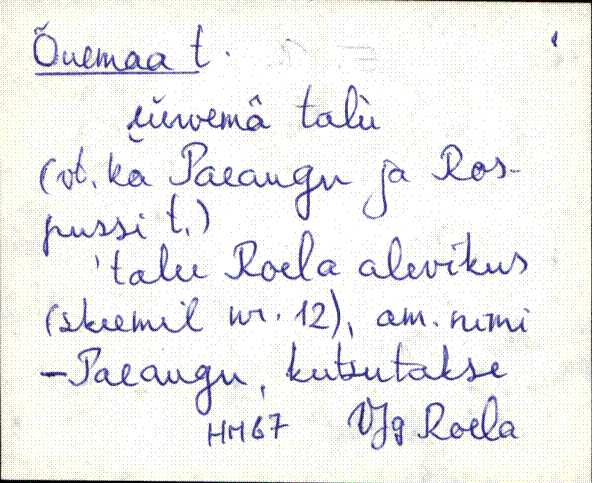 Õuemaa t.
talu
(vt. ka Paeaugu ja Ros-
pussi t.)
'talu Roela alevikus
(skeemil nr. 12), am. nimi
- Paeaugu, kutsutakse
HM67 VJg Roela